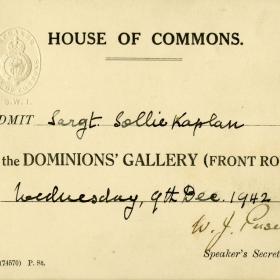 HOUSE OF COMMONS.
S.W.1.
DMIT Sargt. Sollie Kaplan
the DOMINIONS' GALLERY (FRONT RO
Wednesday, 9th Dec. 1942
W. J.
Speaker's Secret
(74570) P. St.